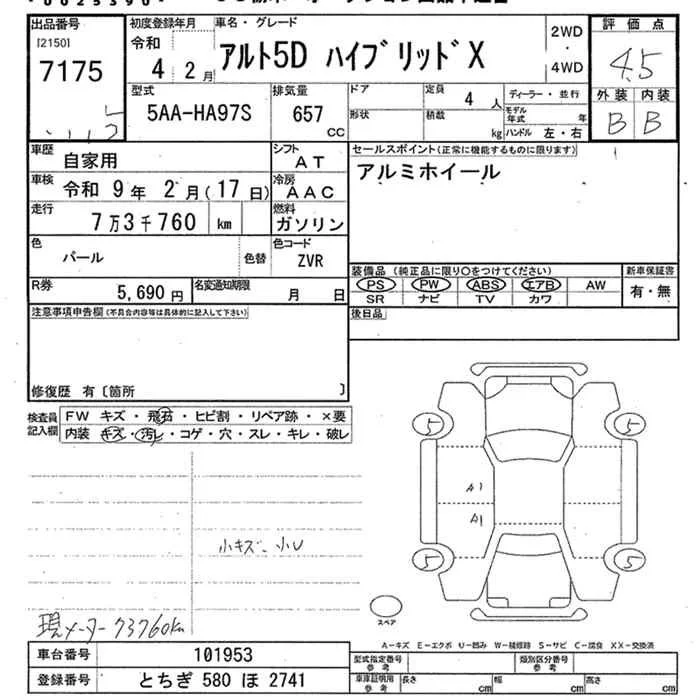 出品番号 初度登録年月 車名・グレード 2WD・4WD 評価点
[2150] 7175 令和 4年 2月 アルト5D ハイブリッドX 4.5
外装 内装
B B
型式 排気量 ドア 定員 4人 ディーラー・並行
5AA-HA97S 657 CC 形状 積載 kg モデル年式 年
ハンドル 左・右
車歴 自家用 シフト AT セールスポイント(正常に機能するものに限ります)
車検 令和 9年 2月(17日) 冷房 AAC アルミホイール
走行 7万3千760 km 燃料 ガソリン
色 パール 色替 色コード ZVR
装備品(純正品に限り○をつけてください) 新車保証書
R券 5,690円 名変通知期限 月 日 PS PW ABS エアB AW 有・無
SR ナビ TV カワ
注意事項申告欄(不具合内容等は具体的に記入して下さい) 後日品
修復歴 有〔箇所 〕
検査員記入欄 FW キズ・飛石・ヒビ割・リペア跡・×要
内装 キズ・汚レ・コゲ・穴・スレ・キレ・破レ
5 5
A1
A1
小キズ、小U
5 5
スペア
現メーター 73760km
A-キズ E-エクボ U-凹み W-補修跡 S-サビ C-腐食 XX-交換済
車台番号 101953 型式指定番号 参考 類別区分番号 参考
登録番号 とちぎ 580 ほ 2741 車庫証明用 参考 長さ cm 幅 cm 高さ cm